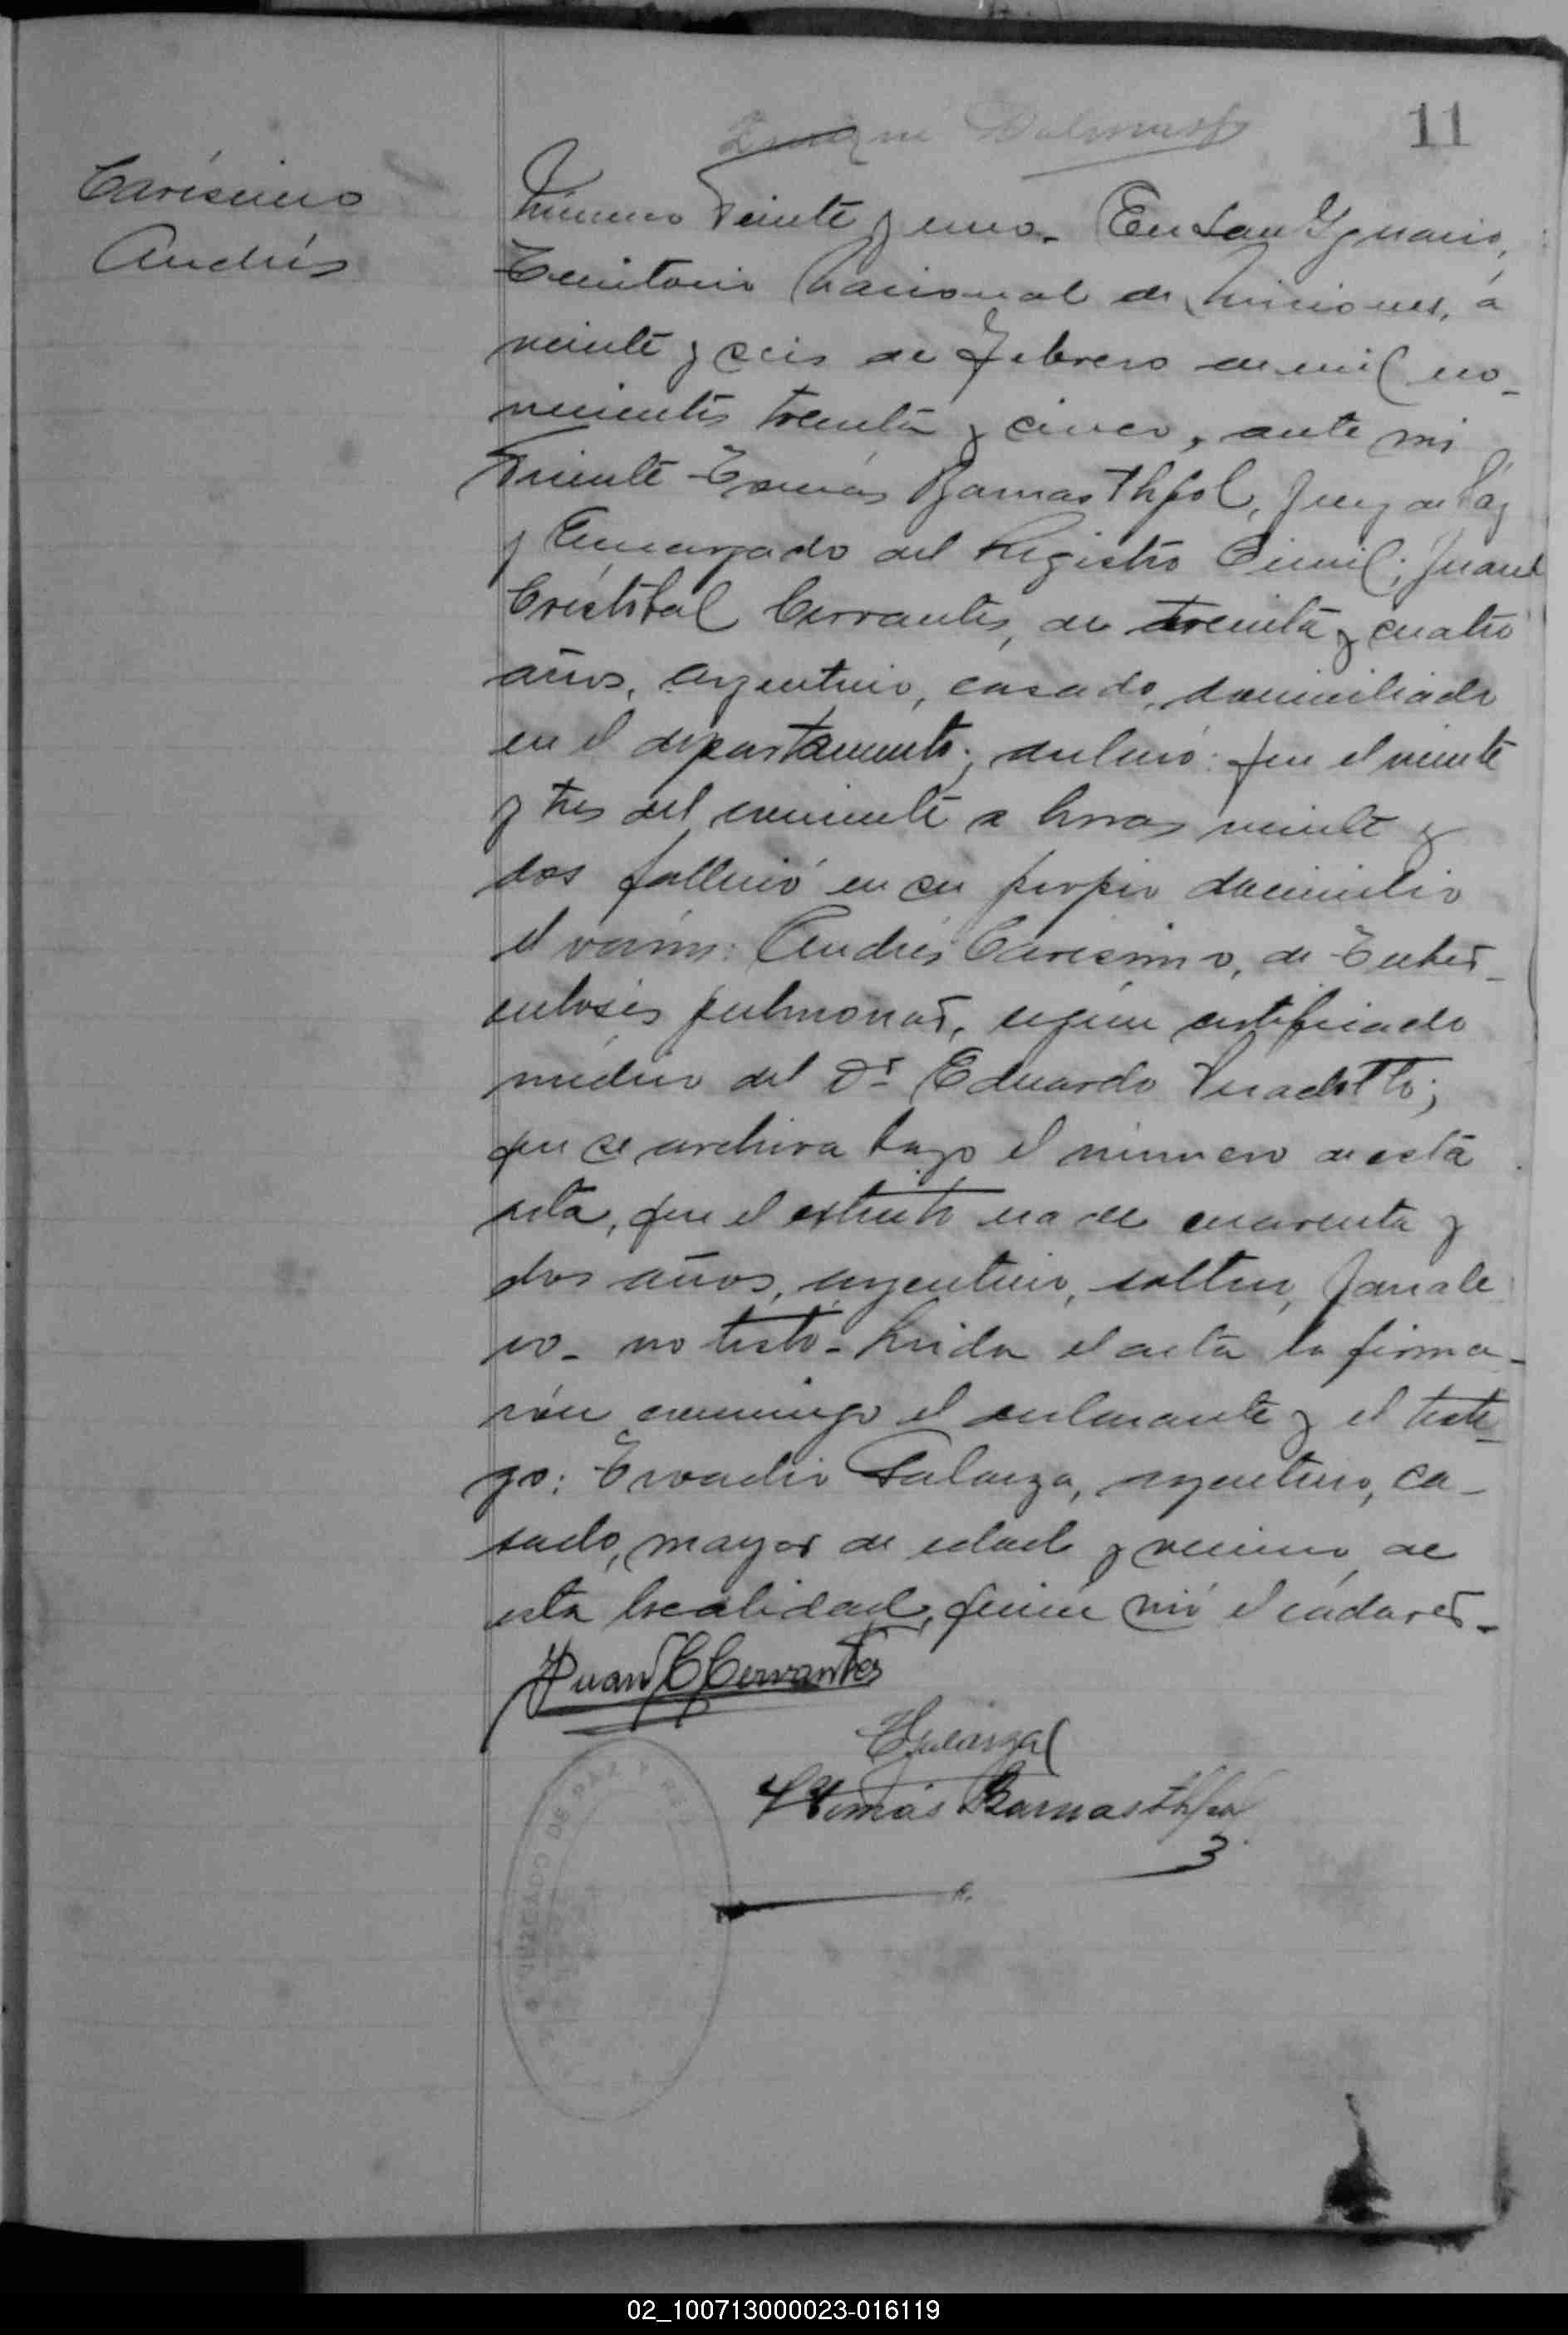 11
Carísimo
Andrés
Número Veinte y uno. En San Ygnacio,
Territorio Nacional de Misiones, á
veinte y seis de Febrero de mil no-
vecientos treinta y cinco, ante mi
Vicente Tomás Barnasthpol, Juez de Páz
y Encargado del Registro Civil; Juan
Cristobal Cervantes, de treinta y cuatro
años, argentino, casado, domiciliado
en el departamento; declaró: que el veinte
y tres del corriente a horas veinte y
dos falleció en su propio domicilio
el varón: Andrés Caresimo, de Tuber-
culosis pulmonar, según certificado
médico del Dr. Eduardo
que se archiva bajo el número de esta
acta, que el extinto era de cuarenta y
dos años, argentino, soltero, jornale
ro - no testó - Leida el acta la firma-
rón conmigo el declarante y el testi-
go: Galarza, argentino, ca-
sado, mayor de edad y vecino de
esta localidad, quien vió el cádaver.-
Juan C Cervantes
EGalarza
VTomás Barnasthpol
JUZGADO DE PAZ Y
02_100713000023-016119